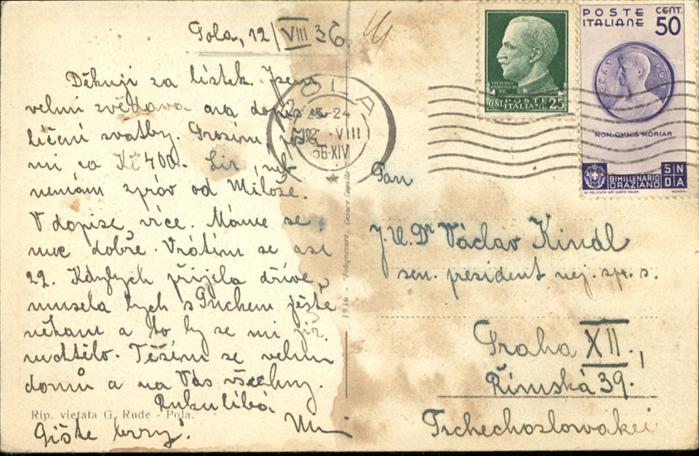 Pola, 12/VIII 36.
Děkuji za lístek. Jsem
velmi zvědava na dopis
líčení svatby. Prosím, 
mi za Kč 400.
nemám zpráv od Miloše.
V dopise více. Máme se
moc dobře. Vrátím se asi
22. Kdybych přijela dříve,
musela bych s Puchem ještě
někam a to by se mi již
nechtělo. Těším se velmi
domů a na Vás všechny.
Rukulíbá
Pište brzy!
Rip. vietata G. Rude - Pola.
1936
POLA
-24
VIII
36-XIV
POSTE ITALIANE 25
POSTE ITALIANE
CENT. 50
NON·OMNIS·MORIAR
BIMILLENARIO ORAZIANO
Pan
J.U.Dr Václav Kindl
sen. president nej. s.
Praha XII.,
Římská 39.
Tschechoslowakei